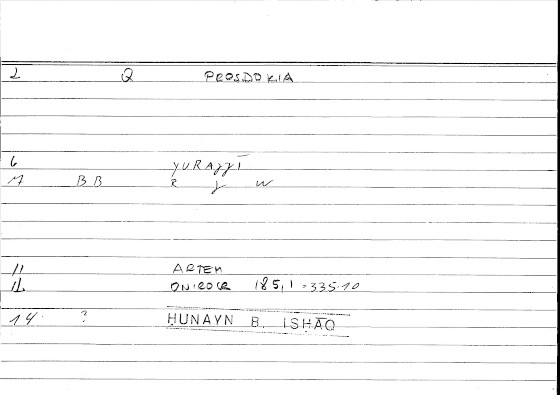 2 Q PROSDOKIA
6 YURAǧǧĪ
M BB R ǧ W
11 ARTEM
12. ONIROCR 185,1 = 335.10
14. ? ḤUNAYN B. ISḤĀQ